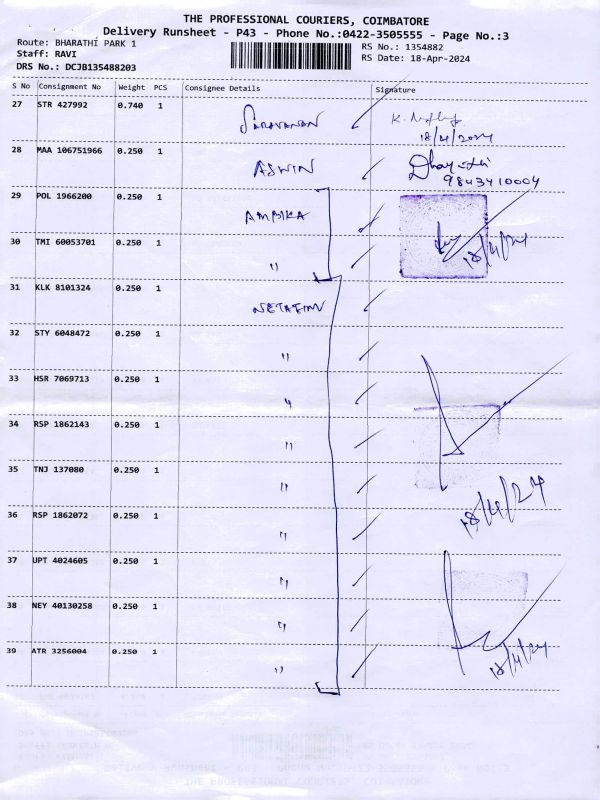 THE PROFESSIONAL COURIERS, COIMBATORE
Delivery Runsheet - P43 - Phone No.:0422-3505555 - Page No.:3
Route: BHARATHI PARK 1
RS No.: 1354882
Staff: RAVI
RS Date: 18-Apr-2024
DRS No.: DCJB135488203
S No Consignment No Weight PCS Consignee Details Signature
27 STR 427992 0.740 1 SARAVANAN
18/4/2024
28 MAA 106751966 0.250 1 ASWIN
9843410004
29 POL 1966200 0.250 1 AMBIKA
30 TMI 60053701 0.250 1 " 18/4/24
31 KLK 8101324 0.250 1 NETAFIM
32 STY 6048472 0.250 1 "
33 HSR 7069713 0.250 1 "
34 RSP 1862143 0.250 1 "
35 TNJ 137080 0.250 1 "
18/4/24
36 RSP 1862072 0.250 1 "
37 UPT 4024605 0.250 1 "
38 NEY 40130258 0.250 1 "
39 ATR 3256004 0.250 1 " 18/4/24